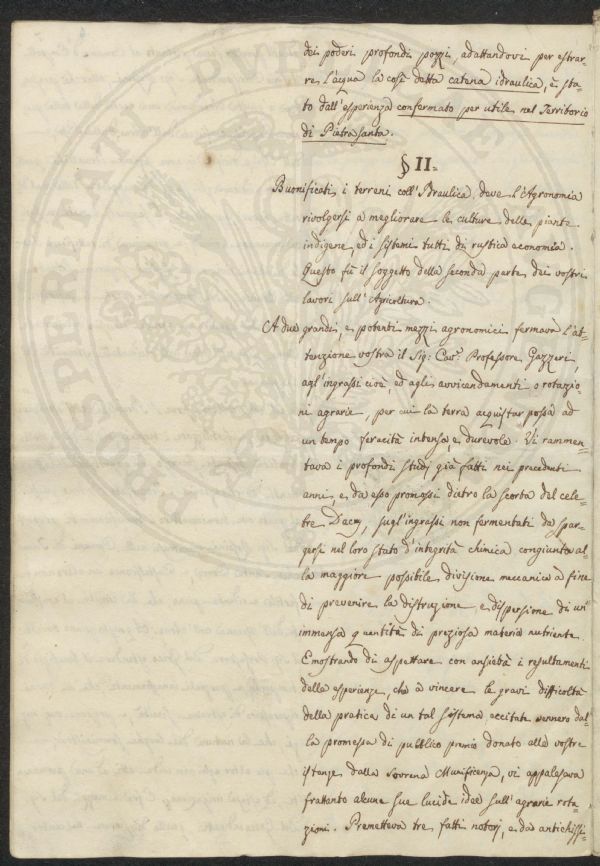 dei poderi profondi pozzi, adattandovi per estrar=
re l'acqua la così detta catena idraulica, è sta=
to dall'esperienza confermato per utile nel Territorio
di Pietra Santa.
§ II=
Buonificati i terreni coll'Idraulica, deve l'Agronomia
rivolgersi a megliorare le culture delle piante
indigene, ed i sistemi tutti di rustica economia.
Questo fù il soggetto della seconda parte dei vostri
lavori sull'Agricoltura.
A due grandi, e potenti mezzi agronomici fermava l'at=
tenzione vostra il Sig: Cav: Professore Gazzeri,
agl'ingrassi cioè, ed agli avvicendamenti o rotazio=
ni agrarie, per cui la terra acquistar possa ad
un tempo feracità intensa, e durevole. Vi rammen=
tava i profondi studj già fatti nei precedenti
anni, e da esso promossi dietro la scorta del cele=
tre Dacry, sugl'ingrassi non fermentati da spar=
gersi nel loro stato d'integrità chimica congiunta al=
la maggiore possibile divisione meccanica a fine
di prevenire la distruzione e dispersione di un'
immensa quantità di preziosa materia nutriente.
E mostrando di aspettare con ansietà i resultamenti
delle esperienze, che a vincere le gravi difficoltà
della pratica di un tal sistema, eccitate vennero dal=
la promessa di pubblico premio donato alle vostre
istanze dalla Sovrana Munificenza, vi appalesava
frattanto alcune sue lucide idee sull'agrarie rota=
zioni. Premetteva tre fatti notorj, e da antichissi=